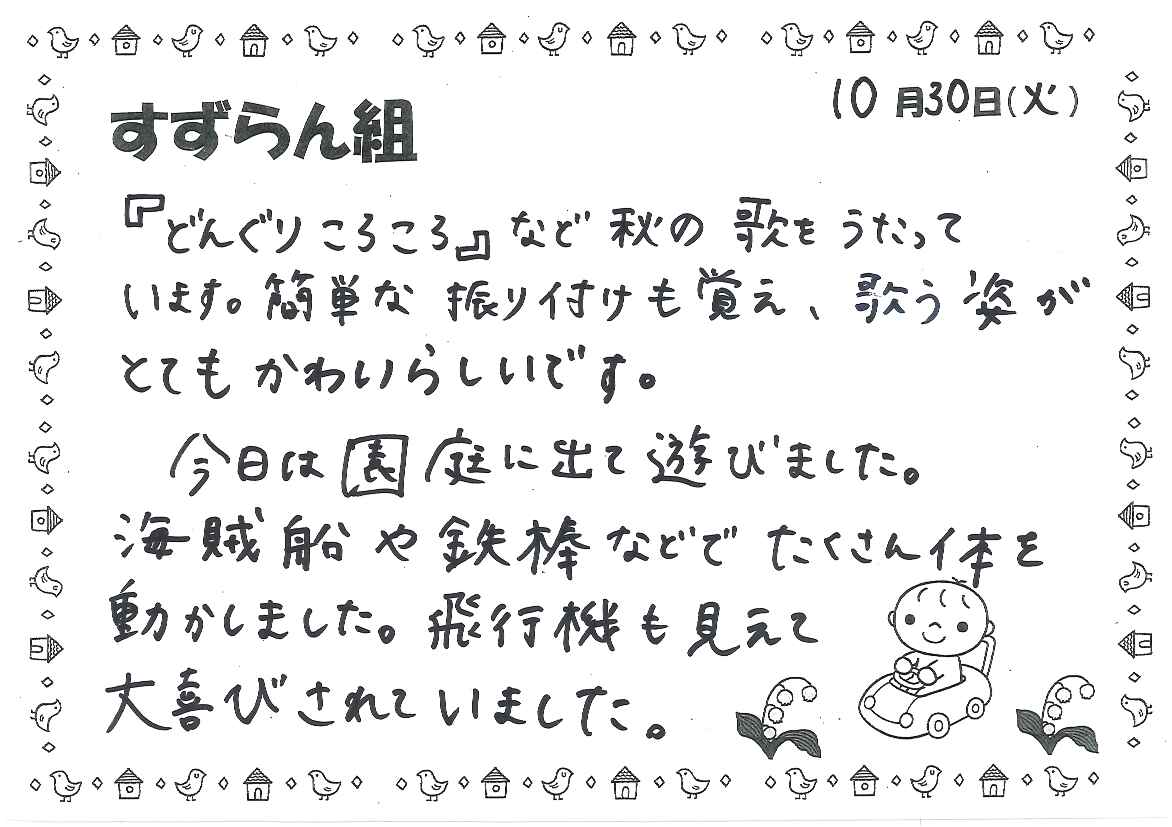 10月30日(火)
すずらん組
『どんぐりころころ』など秋の歌をうたって
います。簡単な振り付けも覚え、歌う姿が
とてもかわいらしいです。
今日は園庭に出て遊びました。
海賊船や鉄棒などでたくさん体を
動かしました。飛行機も見えて
大喜びされていました。